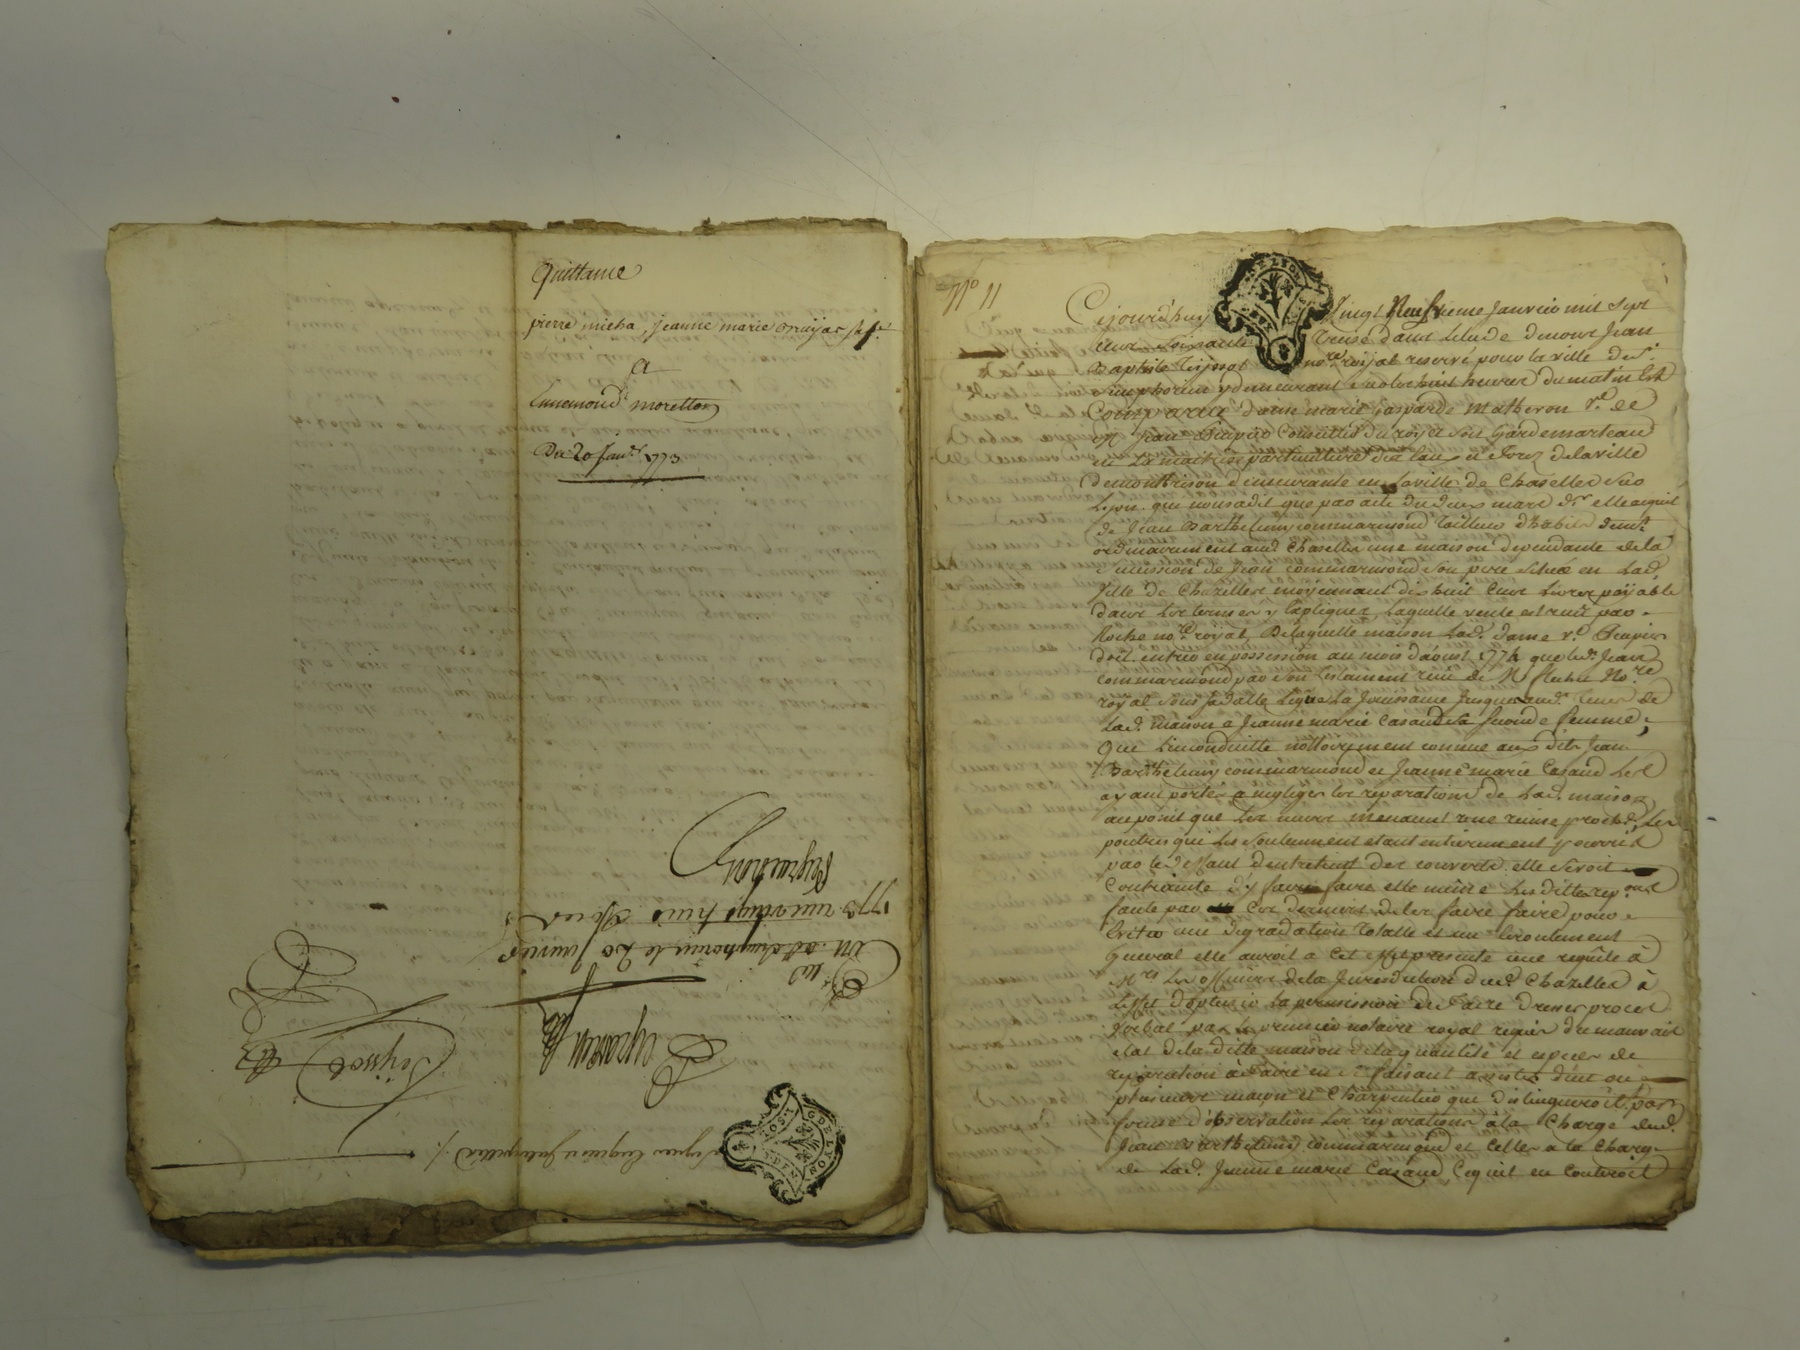 Quittance
pierre micha, jeanne marie
a
Ennemond moretton
Du 20 Janv.er 1773
Peyrachon
1773
a St Simphorien le 20 Janvier
Teyssot
GEN. DE LYON
N.o 11
Cejourd'huy Vingt Neufvieme Janvier mil sept
cent soixante treise dans l'etude de nous Jean
Baptiste Teyssot no.re royal reservé pour la ville de S.t
simphorien y demeurant sur les huit heures du matin Est
Comparue dame marie Gasparde Matheron V.e de
Jean Conseiller du roy et son Garde marteau
en la maitrise particuliere des eaux et de la ville
de montbrison demeurante en la ville de Chaselles sur
Lyon. que nous a dit que par acte du deux mars d.er elle acquit
de Jean Barthelemy commarmond tailleur d'habits dem.t
ordinairement aud. Chaselles une maison dependante de la
de Jean commarmond son pere située en lad.
Ville de Chazelles moyennant dix huit Cent Livres payable
dans les termes y expliqués, Laquelle vente est par
Roche no.re royal, De laquelle maison Lad. dame v.e
doit entrer en possession au mois d'aoust 1774 que led. Jean
commarmond par son testament reçu de M.e No.re
royal sous sa datte Legua La Jouissance Jusques aud. tems de
Lad. maison a Jeanne marie Casaud sa seconde femme;
Que notoirement connue aux dits Jean
Barthelemy commarmond et Jeanne marie Casaud Les
ayant portés a negliger les reparations de Lad. maison
au point que Les murs menacent une ruine proch.e, Les
poutres qui Les soutiennent etant entierement pourris
par le deffaut d'entretient des couverts elle seroit
Contrainte d'y faire faire elle même Les dittes rep.ons
faute par Ces derniers de les faire faire pour
Eviter une degradation totalle et un ecroulement
General elle auroit a Cet effet presenté une requête à
M.rs Les officiers de la Jurisdiction dud. Chazelles à
L'effet d'obtenir La permission de Faire dresser procès
Verbal par le premier notaire royal requis du mauvais
etat de la ditte maison de la quantité et especes de
reparations a Faire en se faisant assister d'un ou
plusieurs maçon et Charpentier que distingueroit par
forme d'observation Les reparations à la Charge dud.
Jean Barthelemy commarmond et Celles a la Charge
de Lad. Jeanne marie Casaud, Ce qu'il en Couteroit